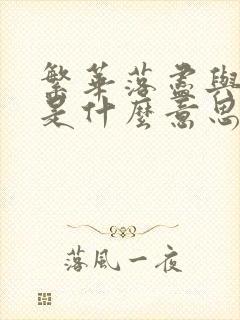 繁華落盡與
是什麼意思
落風一夜